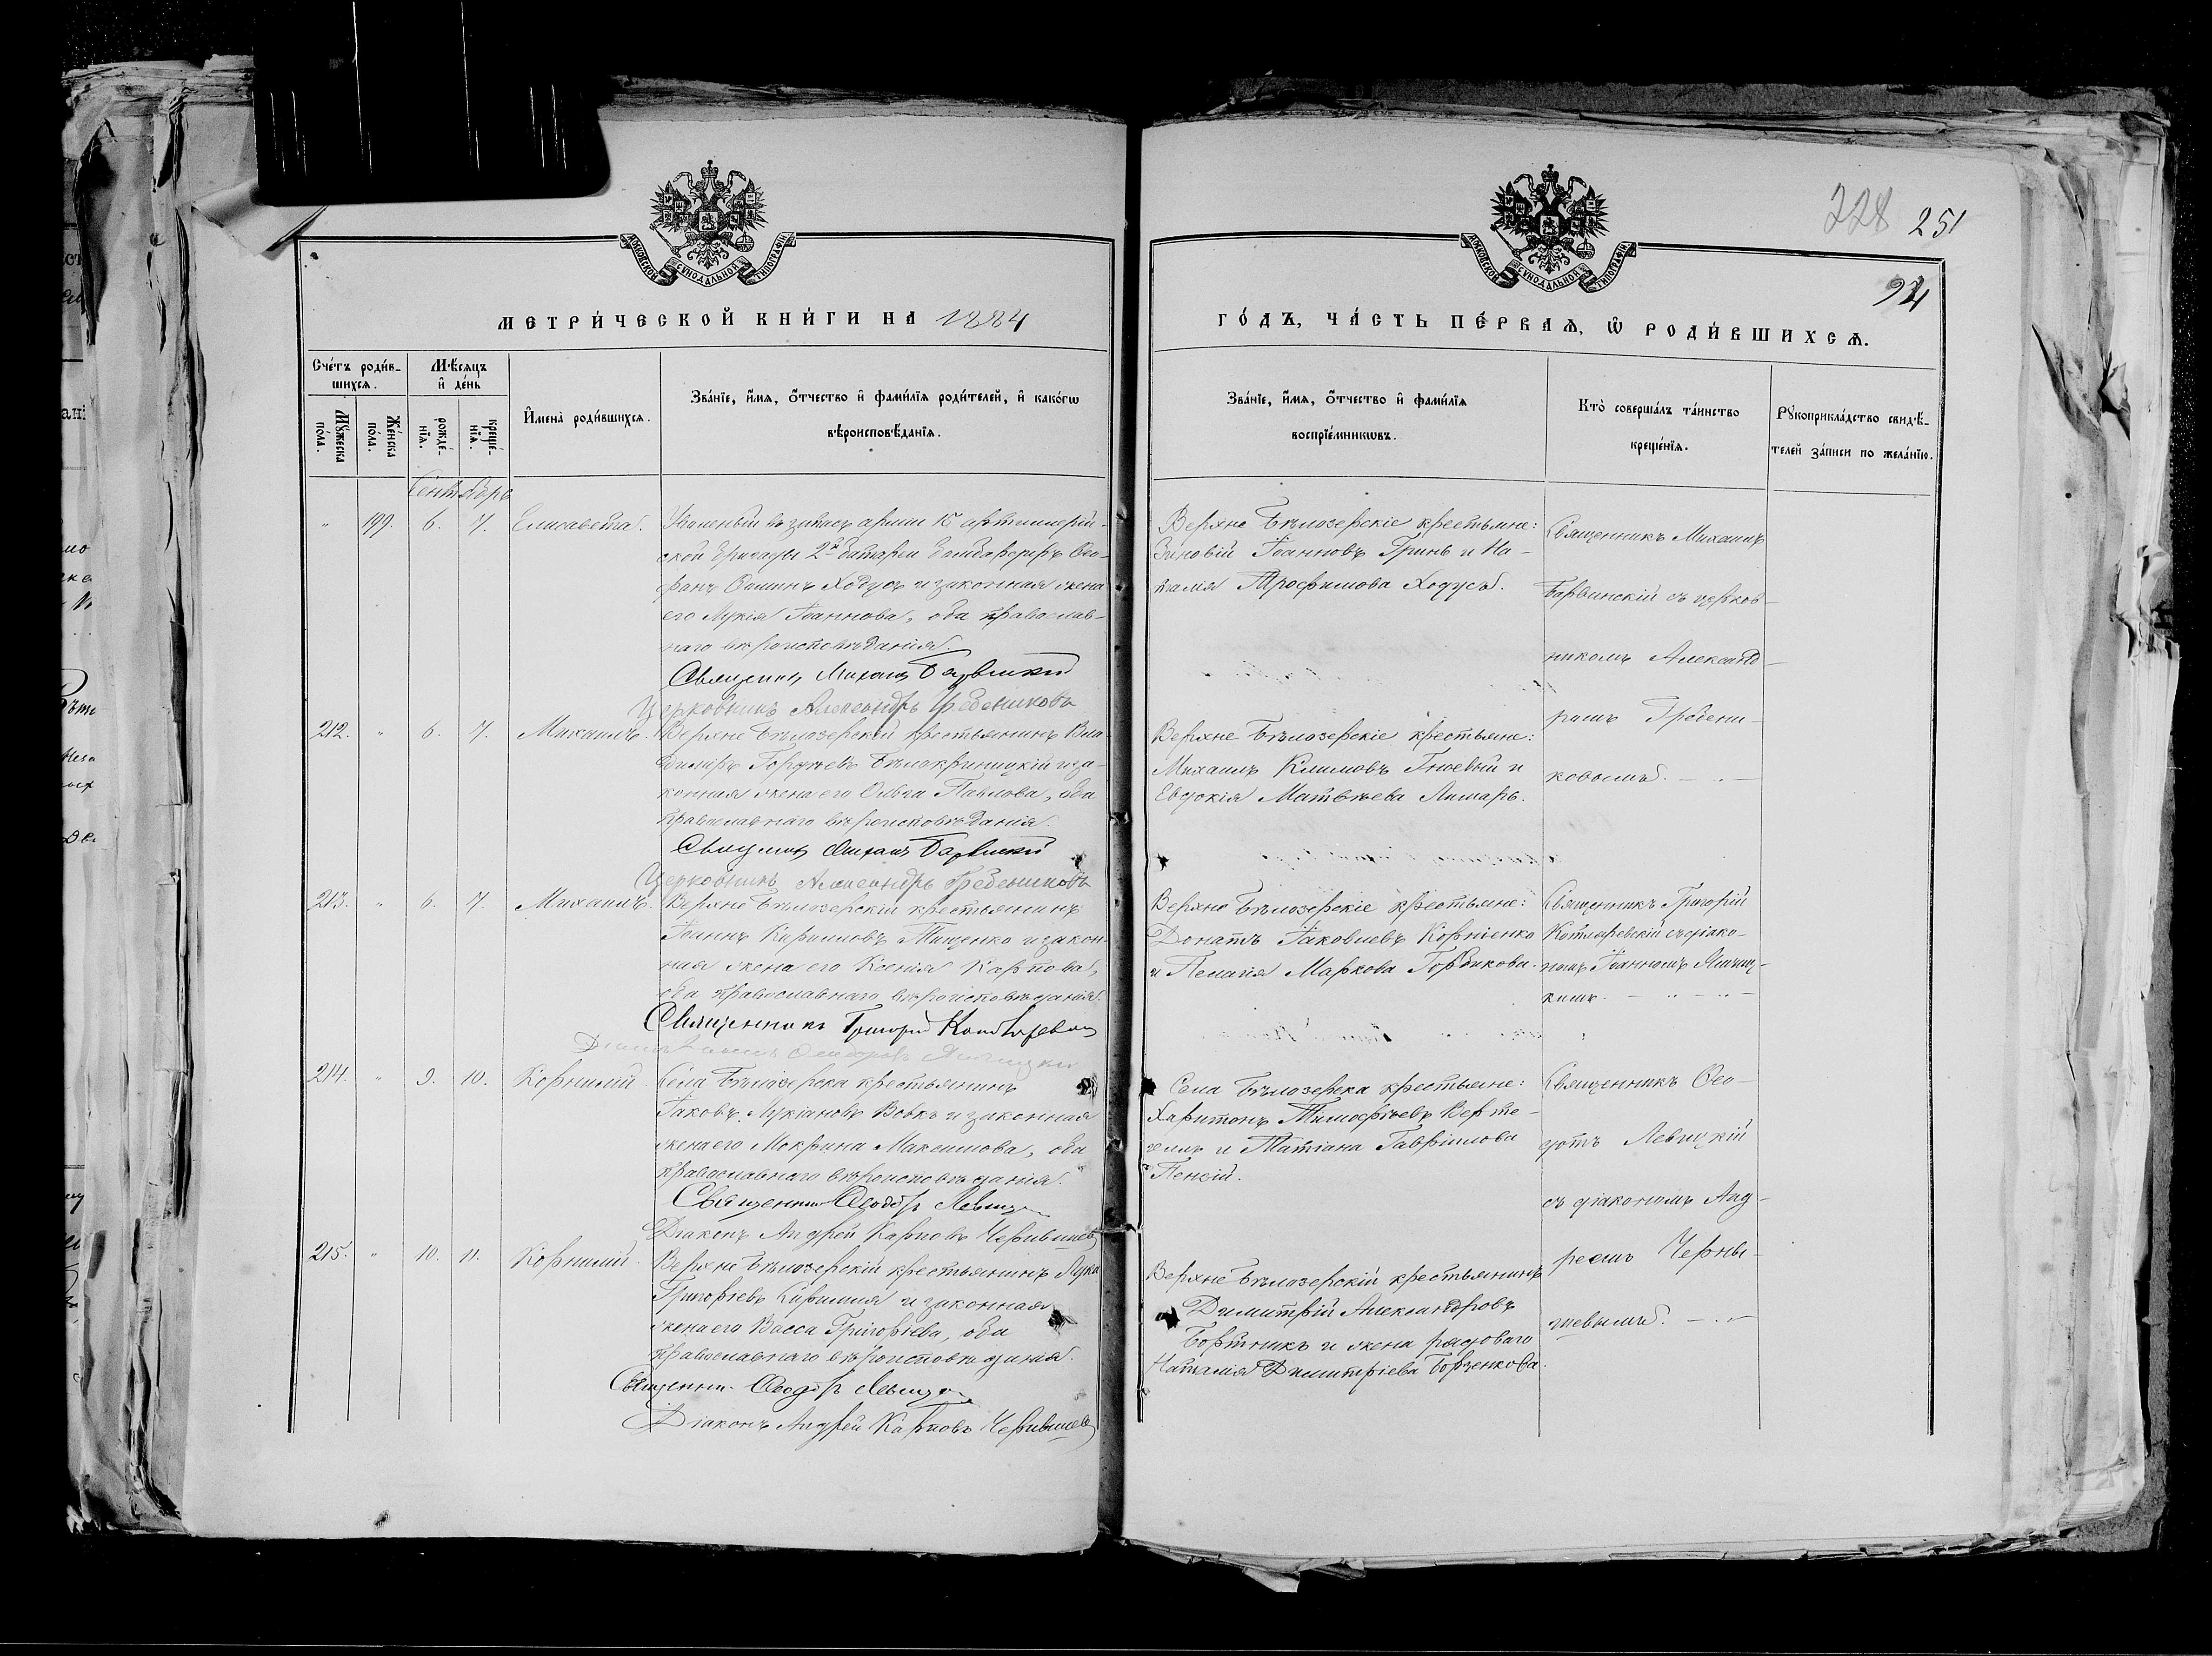 228 251
94
МОСКОВСКОЙ СУНОДАЛЬНОЙ ТИПОГРАФІИ
МОСКОВСКОЙ СУНОДАЛЬНОЙ ТИПОГРАФІИ
МЕТРИ́ЧЕСКОЙ КНИ́ГИ НА 1884
ГО́ДЪ, ЧА́СТЬ ПЕ́РВАѦ, Ѡ҆ РОДИ́ВШИХСѦ.
Сче́тъ роди́в-
шихсѧ.
Мꙋ́жеска
по́ла.
Же́нска
по́ла.
Мѣ́сѧцъ
и҆ де́нь
рожде́-
нїѧ.
креще́-
нїѧ.
И҆мена̀ роди́вшихсѧ.
Зва́нїе, и҆́мѧ, ѻ҆́тчество и҆ фами́лїѧ роди́телей, и҆ како́гѡ
вѣроисповѣ́данїѧ.
Зва́нїе, и҆́мѧ, ѻ҆́тчество и҆ фами́лїѧ
воспрїе́мникѡвъ.
Кто̀ соверша́лъ та́инство
креще́нїѧ.
Рꙋкоприкла́дство свидѣ́-
телей за́писи по жела́нїю.
Сентябрь
" 199. 6. 7. Елисавета.
Уволенный въ запасъ арміи 15 артиллерій-
ской бригады 2й батареи бомбардиръ Ѳео-
фанъ Ѳоминъ Ходусъ и законная жена
его Лукія Іоаннова, оба православ-
наго вѣроисповѣданія.
Священникъ Михаилъ Барвинскій
Церковникъ Александръ Гребениковъ
Верхне Бѣлозерскіе крестьяне:
Зиновій Іоанновъ Гринь и На-
талія Трофимова Ходусъ.
Священникъ Михаилъ
Барвинскій съ церков-
никомъ Александ-
ромъ Гребени-
ковымъ.
212. " 6. 7. Михаилъ.
Верхне Бѣлозерскій крестьянинъ Вла-
димиръ Гордѣевъ Бѣлокриницкій и за-
конная жена его Ольга Павлова, оба
православнаго вѣроисповѣданія.
Священникъ Михаилъ Барвинскій
Церковникъ Александръ Гребениковъ
Верхне Бѣлозерскіе крестьяне:
Михаилъ Климовъ Гноевый и
Евдокія Матвѣева Лимарь.
213. " 6. 7. Михаилъ.
Верхне Бѣлозерскій крестьянинъ
Іоаннъ Кирилловъ Тищенко и закон-
ная жена его Ксенія Карпова,
оба православнаго вѣроисповѣданія.
Священникъ Григорій Котляревскій
Верхне Бѣлозерскіе крестьяне:
Донатъ Іаковлевъ Корніенко
и Пелагія Маркова Горбикова.
Священникъ Григорій
Котляревскій съ діако-
номъ Іоанномъ
214. " 9. 10. Корнилій
Села Бѣлозерка крестьянинъ
Іаковъ Лукіановъ Вовкъ и законная
жена его Мокрина Максимова, оба
православнаго вѣроисповѣданія.
Священникъ Ѳеодотъ Левицкій
Діаконъ Андрей Карповъ Чернышевъ
Села Бѣлозерка крестьяне:
Харитонъ Тимофѣевъ Верте-
и Татіана Гавріилова
Пензій.
Священникъ Ѳео-
дотъ Левицкій
съ діакономъ Анд-
реемъ Черны-
шевымъ.
215. " 10. 11. Корнилій
Верхне Бѣлозерскій крестьянинъ Лука
Григорьевъ и законная
жена его Васса Григорьева, оба
православнаго вѣроисповѣданія.
Священникъ Ѳеодотъ Левицкій
Діаконъ Андрей Карповъ Чернышевъ
Верхне Бѣлозерскій крестьянинъ
Димитрій Александровъ
Бортникъ и жена рядоваго
Наталія Димитріева Борзенкова.